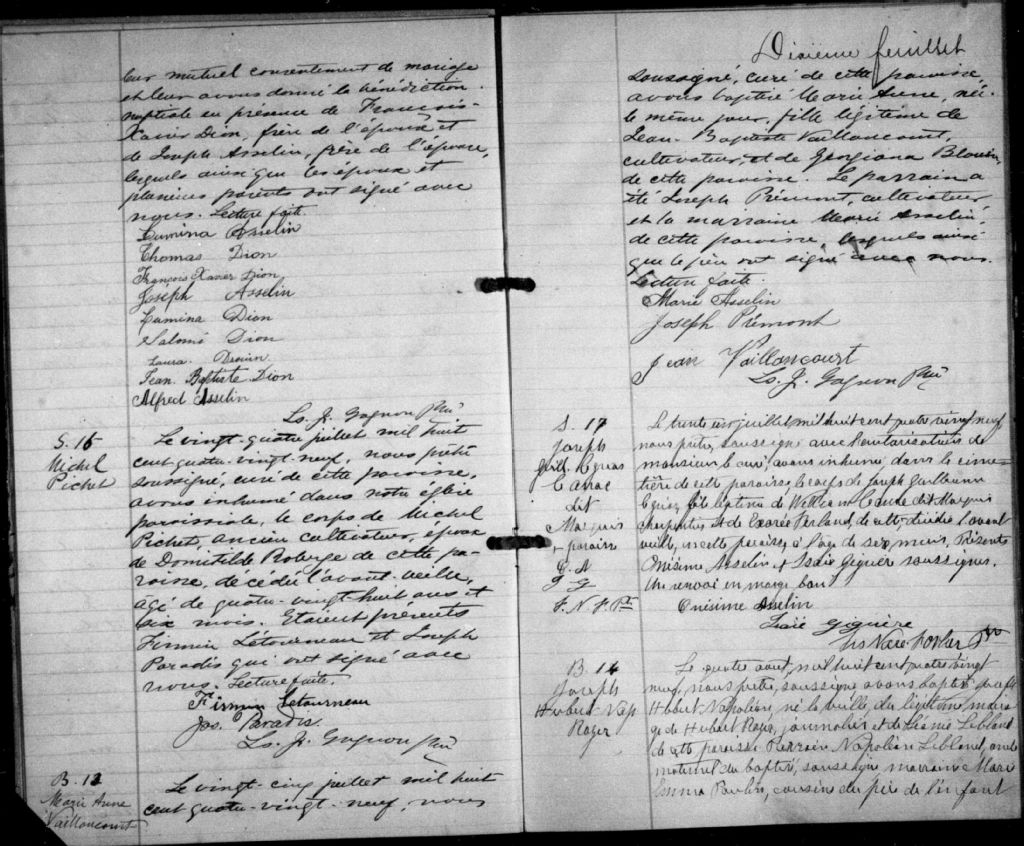 leur mutuel consentement de mariage
et leur avons donné la bénédiction
nuptiale en présence de François-
Xavier Dion, frère de l'époux et
de Joseph Asselin, frère de l'épouse,
lesquels ainsi que les époux et
plusieurs parents ont signé avec
nous. Lecture faite.
Lumina Asselin
Thomas Dion
François Xavier Dion
Joseph Asselin
Lumina Dion
Salomé Dion
Laura Drouin
Jean Baptiste Dion
Alfred Asselin
Ls. J. Gagnon Ptre
S. 16
Michel
Pichet
Le vingt-quatre juillet mil huit
cent quatre-vingt-neuf, nous prêtre
soussigné, curé de cette paroisse,
avons inhumé dans notre église
paroissiale, le corps de Michel
Pichet, ancien cultivateur, époux
de Domitilde Roberge de cette pa-
roisse, décédé l'avant-veille,
âgé de quatre-vingt-huit ans et
six mois. Etaient présents
Firmin Létourneau et Joseph
Paradis qui ont signé avec
nous. Lecture faite.
Firmin Letourneau
Jos. Paradis.
Ls. J. Gagnon Ptre
B. 13
Marie Anne
Vaillancourt
Le vingt-cinq juillet mil huit
cent quatre-vingt-neuf, nous
Dixième feuillet
soussigné, curé de cette paroisse,
avons baptisé Marie Anne, née
le même jour, fille légitime de
Jean-Baptiste Vaillancourt,
cultivateur, et de Georgiana Blouin,
de cette paroisse. Le parrain a
été Joseph Prémont, cultivateur,
et la marraine Marie Asselin,
de cette paroisse, lesquels ainsi
que le père ont signé avec nous.
Lecture faite.
Marie Asselin
Joseph Prémont
Jean Vaillancourt
Ls. J. Gagnon Ptre
S. 17
Joseph
Guil. Cyrias
dit
Marquis
+ paroisse
O A
J G
F. N. F. Ptre
Le trente un juillet mil huit cent quatre vingt neuf
nous prêtre, soussigné avec l'autorisation de
monsieur le curé, avons inhumé dans le cime-
tière de cette paroisse, le corps de Joseph Guillaume
fils légitime de William dit Marquis
charpentier et de Ferland, de cette décédé l'avant
veille, en cette paroisse, à l'âge de six mois, Présents
Onésime Asselin et Isaïe Giguère soussignés.
Un renvoi en marge bon.
Onésime Asselin
Isaïe Giguère
B. 14
Joseph
Hubert-Nap.
Roger
Le quatre août, mil huit cent quatre vingt
neuf, nous prêtre, soussigné avons baptisé Joseph
Hubert-Napoléon, né la veille du légitime maria
ge de Hubert Roger, journalier et de Leblond
de cette paroisse Parrain Napoléon Leblond, oncle
maternel du baptisé, soussigné marraine Marie
Emma Poulin, cousine du père de l'enfant